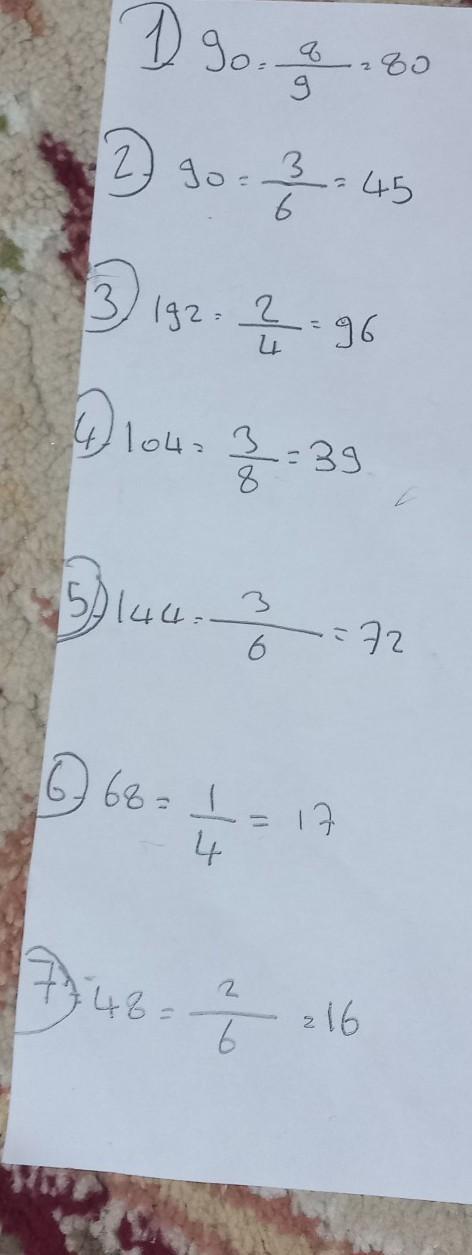 1) 90 = 8/9 = 80
2) 90 = 3/6 = 45
3) 192 = 2/4 = 96
4) 104 = 3/8 = 39
5) 144 = 3/6 = 72
6) 68 = 1/4 = 17
7) 48 = 2/6 = 16